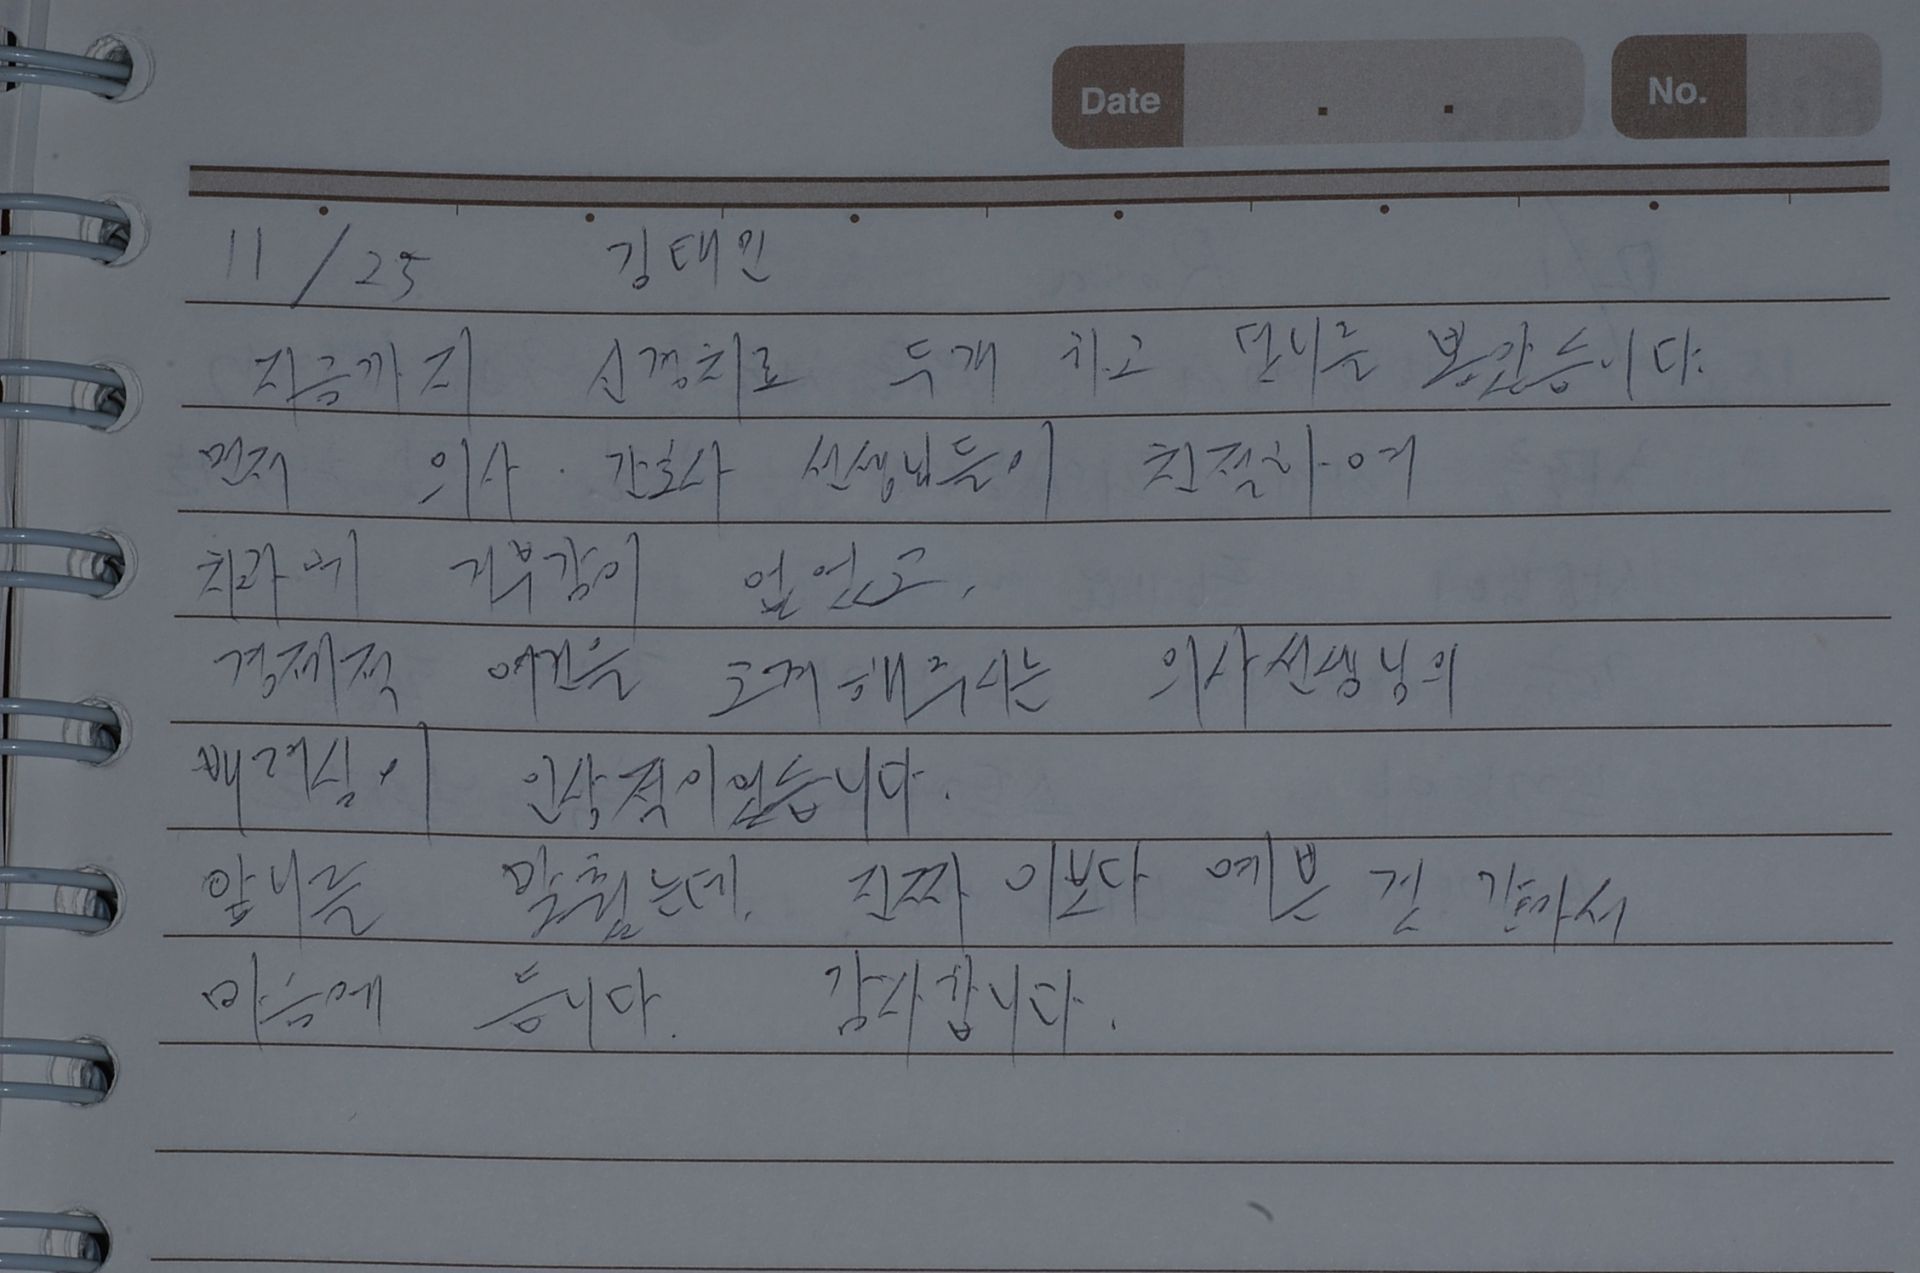 Date . . No.
11/25 김태민
지금까지 신경치료 두개 하고 앞니를 봉했습니다.
먼저 의사·간호사 선생님들이 친절하여
치과에 거부감이 없었고,
경제적 여건을 고려해주시는 의사선생님의
배려심이 인상적이었습니다.
앞니를 맞췄는데, 진짜 이보다 예쁜 것 같아서
마음에 듭니다. 감사합니다.